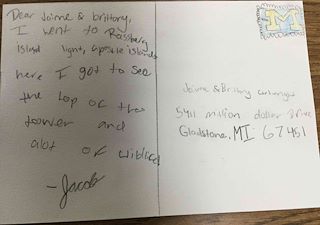 Dear Jaime & brittany,
I went to Rassberg
Island light, apostle islands
here I got to see
the top of the
tower and
alot of
-Jacob
M
Jaime & Brittany
5411 million dollar Drive
Gladstone, MI 67451